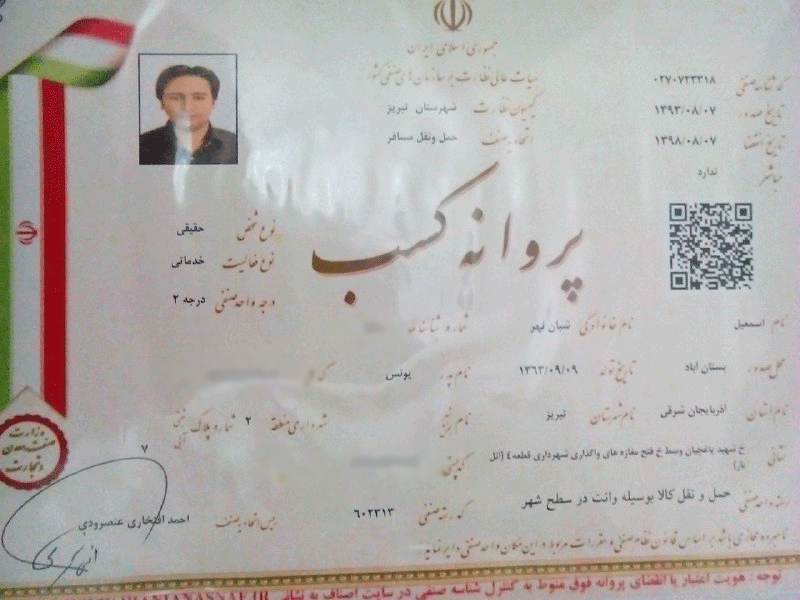 جمهوری اسلامی ایران
هیات عالی نظارت بر سازمان های صنفی کشور
کمیسیون نظارت شهرستان تبریز
اتحادیه صنف حمل ونقل مسافر
شناسه صنفی ۰۲۷۰۷۲۳۳۱۸
تاریخ صدور ۱۳۹۳/۰۸/۰۷
تاریخ انقضا ۱۳۹۸/۰۸/۰۷
مباشر ندارد
پروانه کسب
نوع شخص حقیقی
نوع فعالیت خدماتی
درجه واحد صنفی درجه ۲
نام اسمعیل نام خانوادگی شبان نهر شماره شناسنامه
محل صدور بستان آباد تاریخ تولد ۱۳۶۳/۰۹/۰۹ نام پدر یونس کد
نام استان آذربایجان شرقی نام شهرستان تبریز نام شهرداری منطقه ۲ شماره پلاک ثبتی آبی
نشانی خ شهید باغنجیان وسط خ فتح مغازه های واگذاری شهرداری قطعه٤ (اتل بار) کدپستی ۷
رسته واحد صنفی حمل و نقل کالا بوسیله وانت در سطح شهر کد رسته صنفی ۶۰۲۳۱۳ رییس اتحادیه صنف احمد افتخاری عنصرودی
نامبرده مجاز می باشد بر اساس قانون نظام صنفی و مقررات مربوط در این مکان واحد صنفی دایر نماید
وزارت
صنعت، معدن
و تجارت
توجه : هویت اعتبار یا انقضای پروانه فوق منوط به کنترل شناسه صنفی در سایت اصناف به نشانی IRANIANASNAF.IR